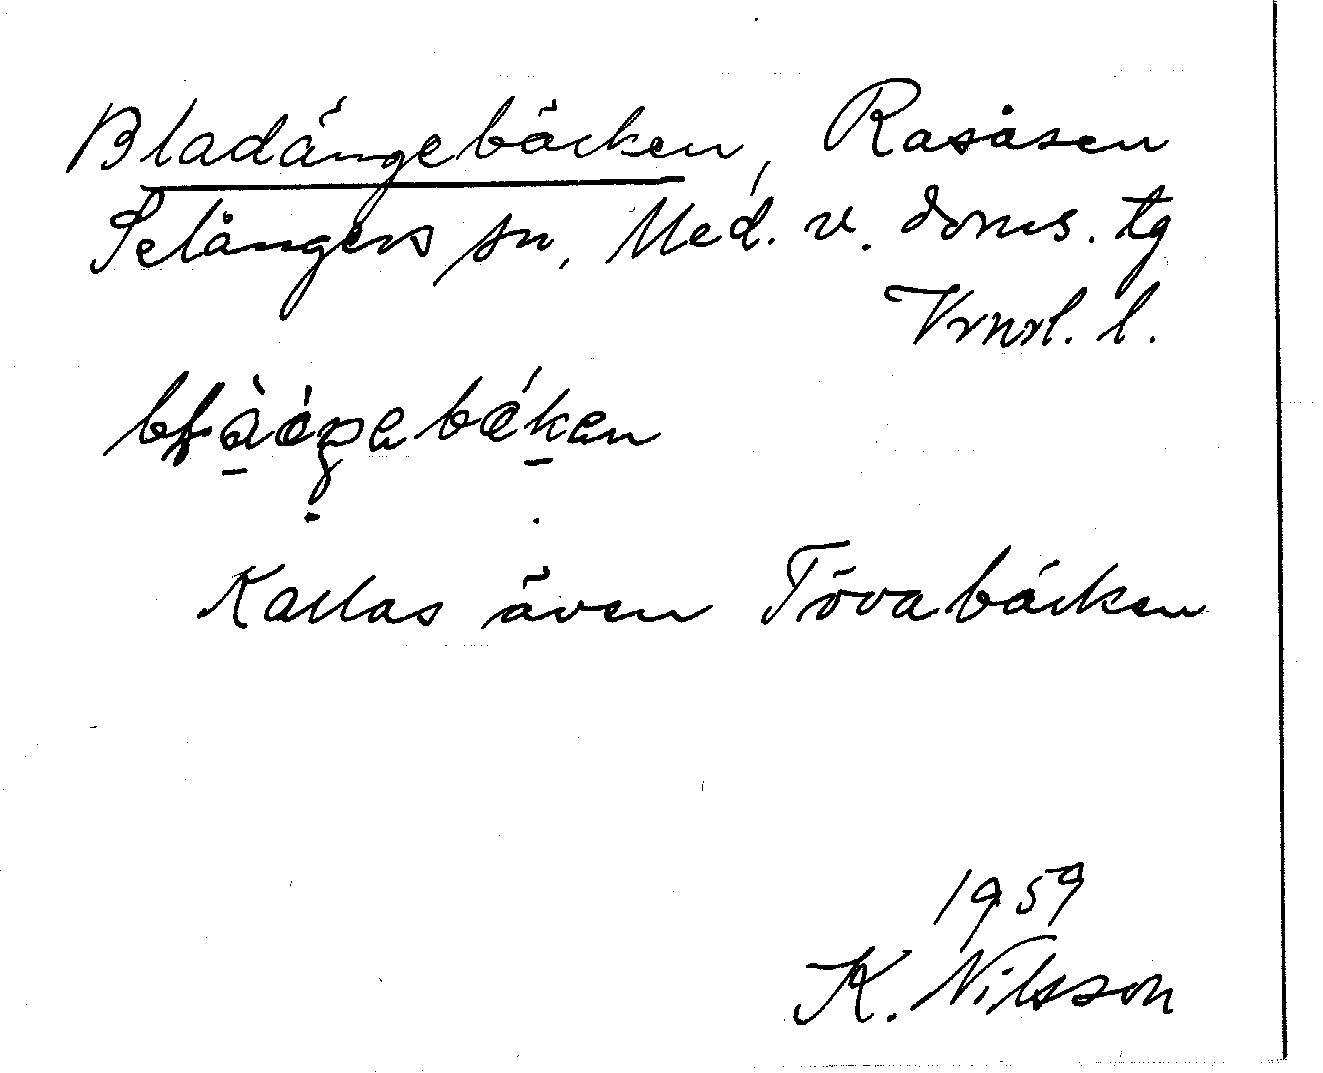 Bladängebäcken, Rasåsen
Selångers sn, Med. v. doms. tg
Vrnrl. l.
Kallas även Tövabäcken
1959
K. Nilsson